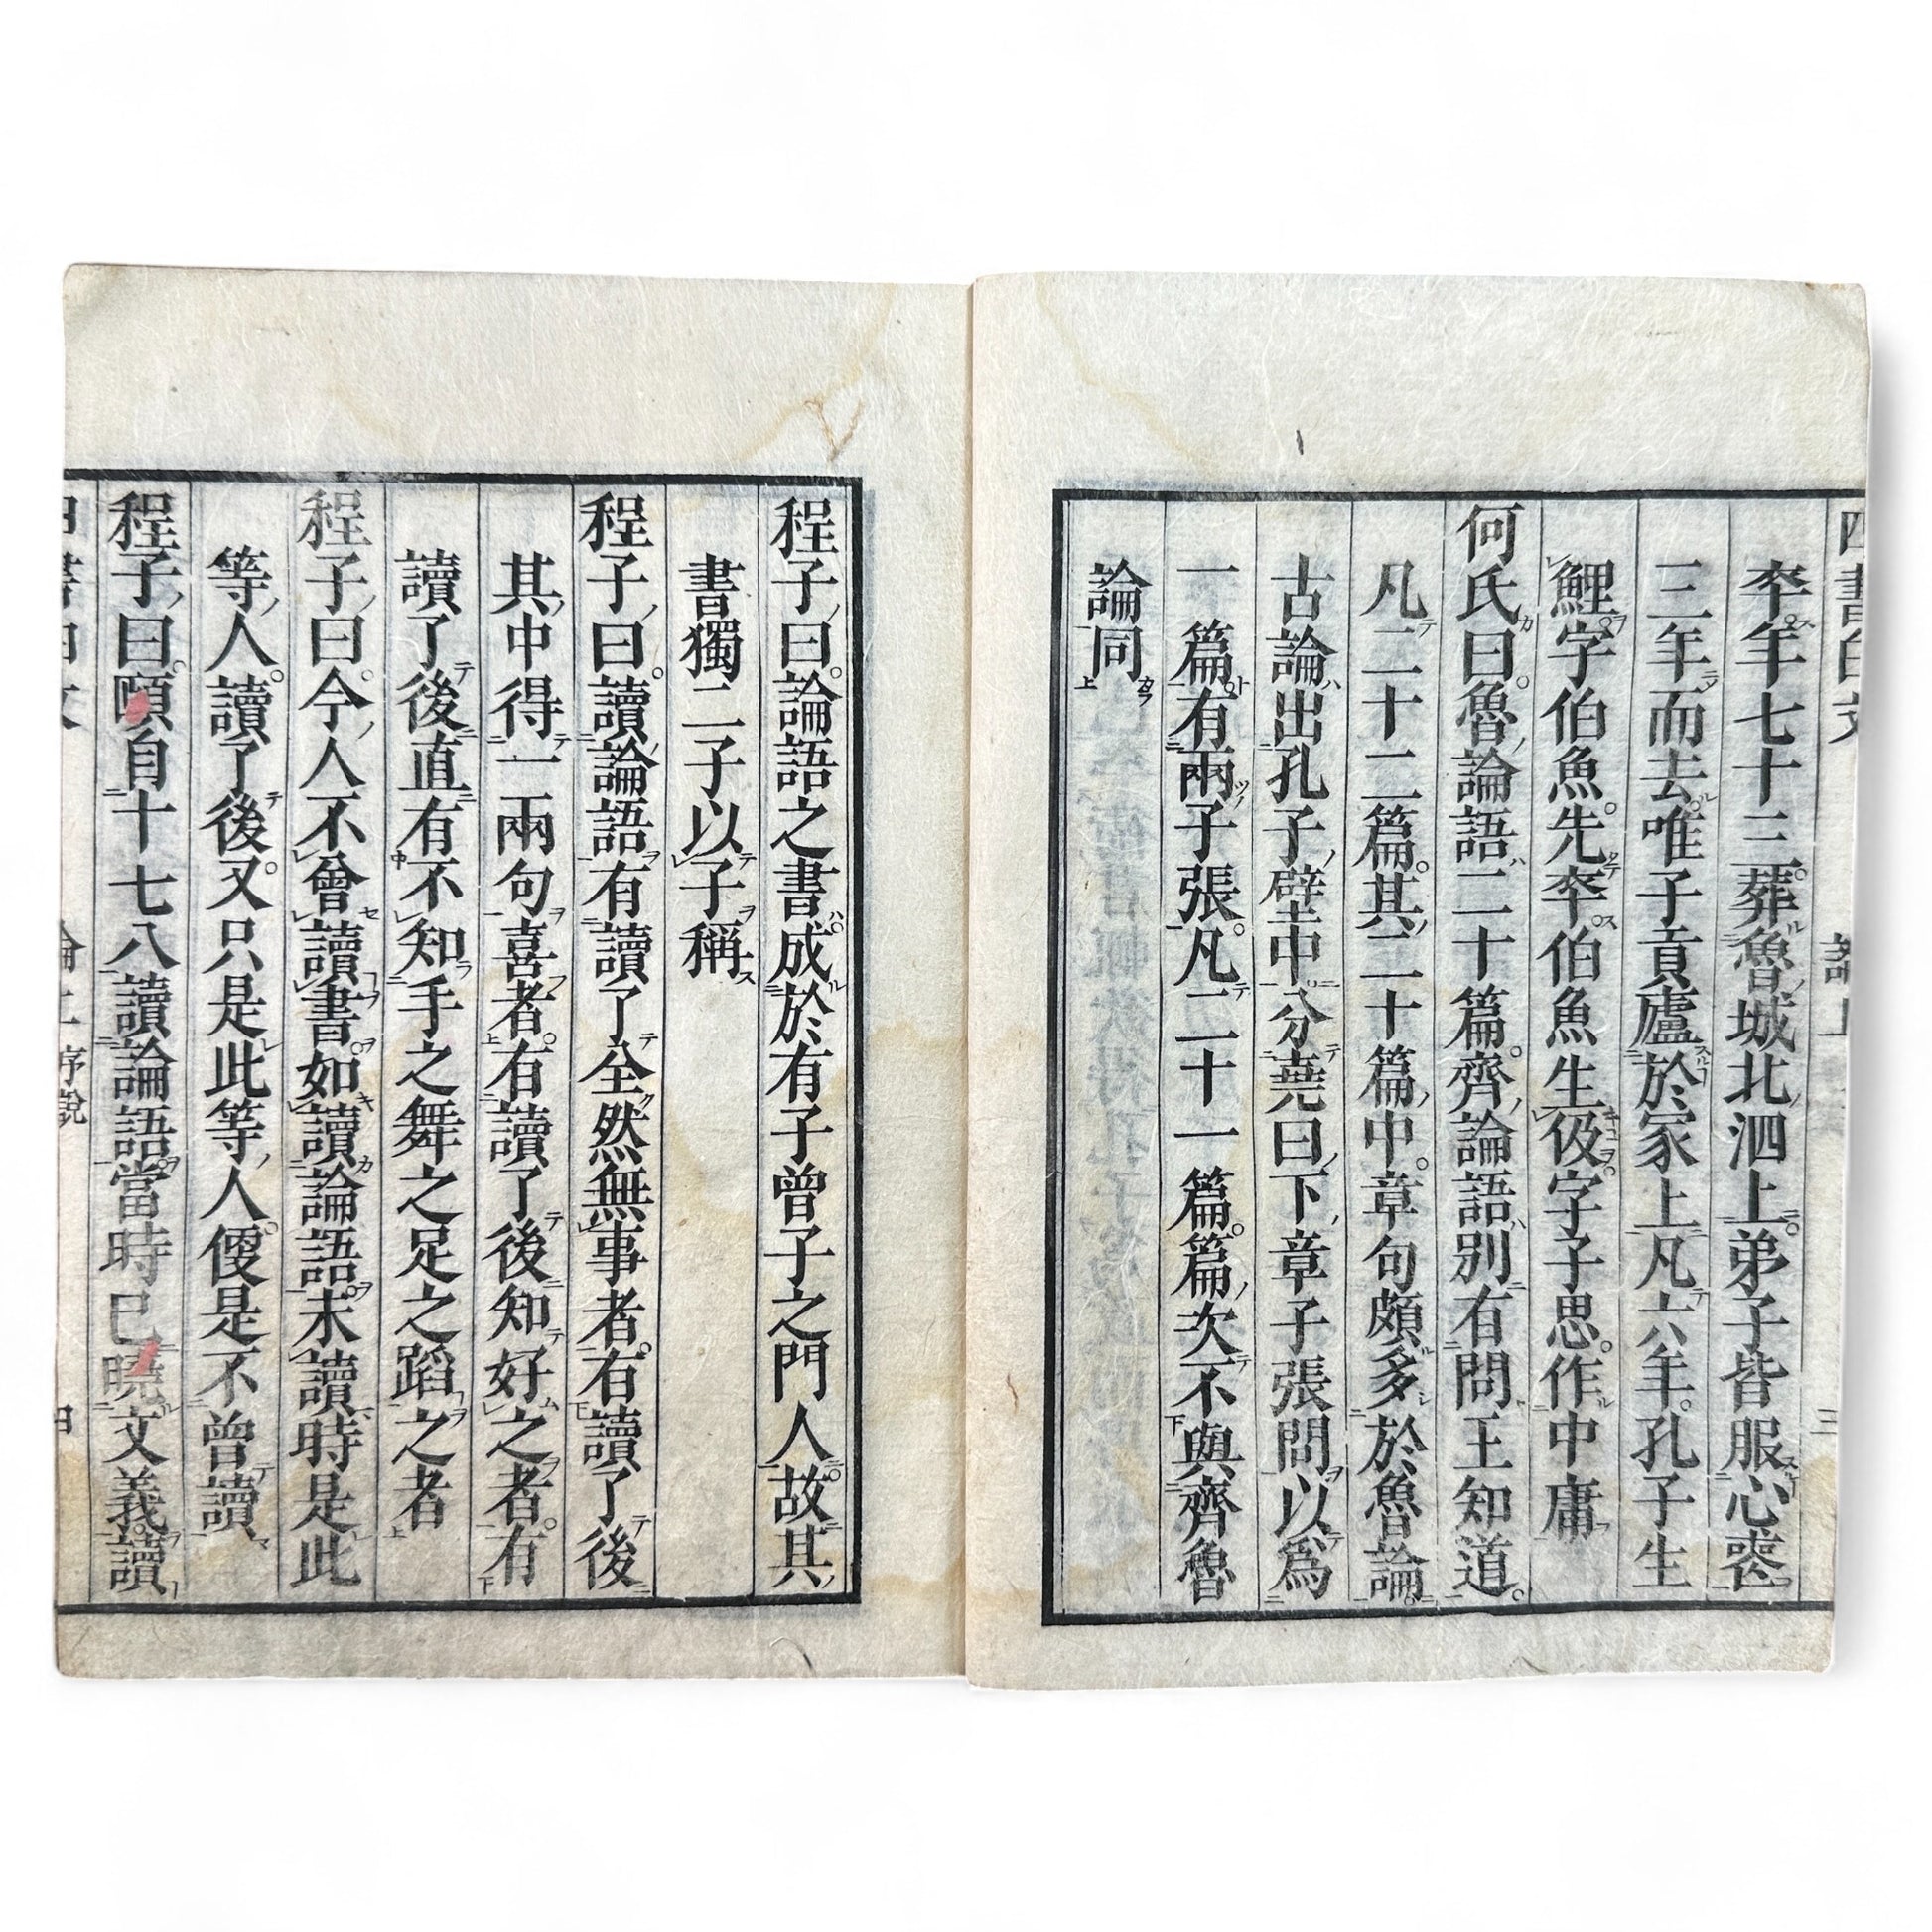 卒年七十三葬魯城北泗上弟子皆服心喪
三年而去唯子貢廬於家上凡六年孔子生
鯉字伯魚先卒伯魚生伋字子思作中庸
何氏曰魯論語二十篇齊論語別有問王知道
凡二十二篇其二十篇中章句頗多於魯論
古論出孔子壁中分堯曰下章子張問以爲
一篇有兩子張凡二十一篇篇次不與齊魯
論同
程子曰論語之書成於有子曾子之門人故其
書獨二子以子稱
程子曰讀論語有讀了全然無事者有讀了後
其中得一兩句喜者有讀了後知好之者有
讀了後直有不知手之舞之足之蹈之者
程子曰今人不會讀書如讀論語未讀時是此
等人讀了後又只是此等人便是不曾讀
程子曰頤自十七八讀論語當時已曉文義讀